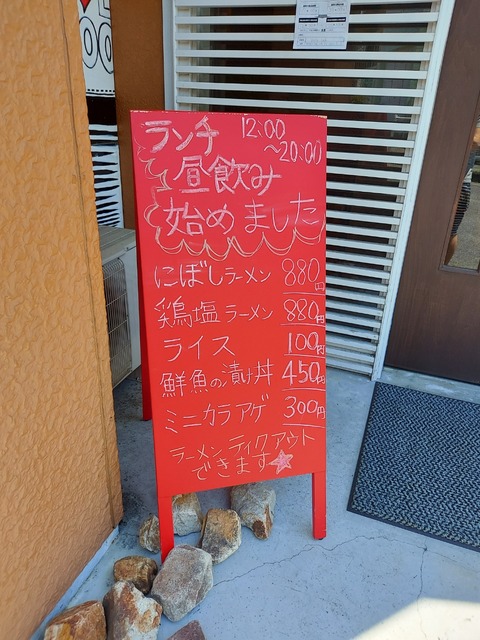 ランチ 12:00
~20:00
昼飲み
始めました
にぼしラーメン 880円
鶏塩ラーメン 880円
ライス 100円
鮮魚の漬け丼 450円
ミニカラアゲ 300円
ラーメンティクアウト
できます☆